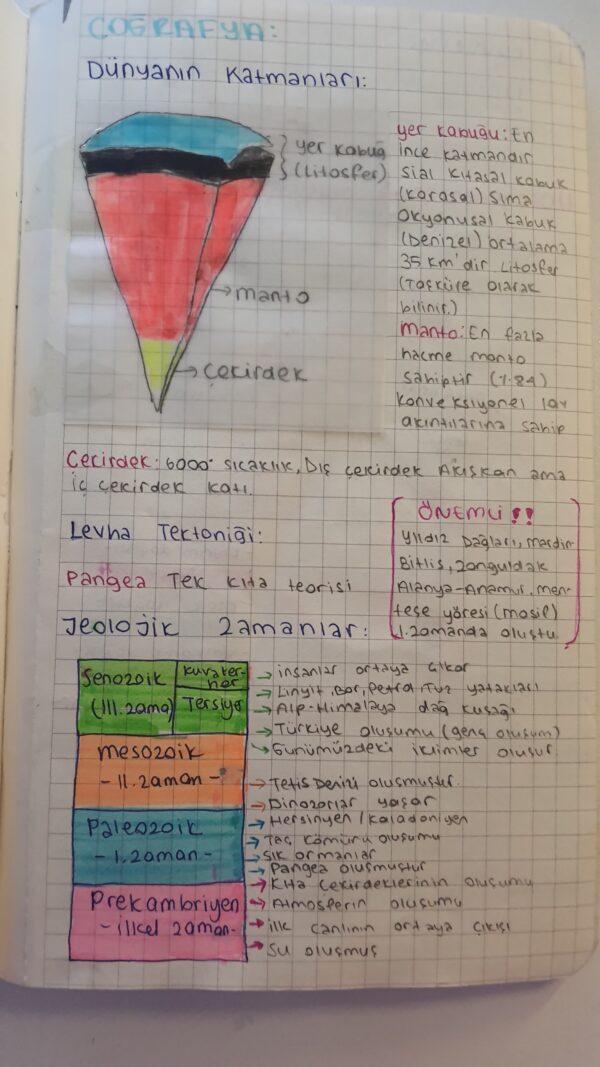 COĞRAFYA:
Dünyanın Katmanları:
yer kabuğ
(Litosfer)
manto
Çekirdek
yer kabuğu: En
ince katmandır
sial kıtasal kabuk
(karasal) Sima
Okyonusal kabuk
(Denizel) ortalama
35 km'dir Litosfer
(Taşküre olarak
bilinir.)
manto: En fazla
hacme manto
sahiptir (%84)
konveksiyonel lav
akıntılarına sahip
Çecirdek: 6000° sıcaklık, Dış çekirdek Akışkan ama
iç çekirdek katı.
Levha Tektoniği:
Pangea Tek kıta teorisi
ÖNEMLİ !!
Yıldız Dağları, mardin
Bitlis, Zonguldak
Alanya-Anamur, men-
teşe yöresi (masif)
1. zamanda oluştu
Jeolojik Zamanlar:
Senozoik
(III. zama)
kuvater-
ner
Tersiye
→ insanlar ortaya çıkar
→ Linyit, Bor, Petrol, Tuz yatakları
→ Alp-Himalaya dağ kuşağı
→ Türkiye oluşumu (genç oluşum)
→ Günümüzdeki iklimler oluşur.
mesozoik
- II. zaman -
→ Tetis Denizi oluşmuştur.
→ Dinozorlar yaşar
Paleozoik
- 1. zaman -
→ Hersinyen / kaladoniyen
→ Taş kömürü oluşumu
→ sık ormanlar
→ Pangea oluşmuştur
Prekambriyen
- ilkel zaman -
→ Kıta Çekirdeklerinin oluşumu
→ Atmosferin oluşumu
→ ilk canlının ortaya çıkışı
→ su oluşmuş